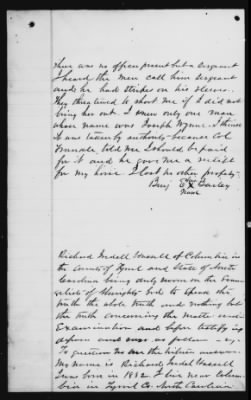 There was no officer present but a Sergeant
I heard the men call him Sergeant
and he had stripes on his sleeves.
They threatened to shoot me if I did not
bring her out. I knew only one man
whose name was Joseph Wynne. I think
it was taken by authority because Col
told me I should be paid
for it and he gave me a receipt
for my horse I lost no other property.
Benj X
mark
Richard of Columbia in
the County of Tyrrell and State of North
Carolina being duly sworn on the Evan-
gelists of Almighty God to speak the
truth the whole truth and nothing but
the truth concerning the matter under
Examination and before testify is
deposes and says as follow
To question No one the witness answers
My name is Richard
I was born in 1832. I live near Colum-
bia in Tyrrell Co. North Carolina